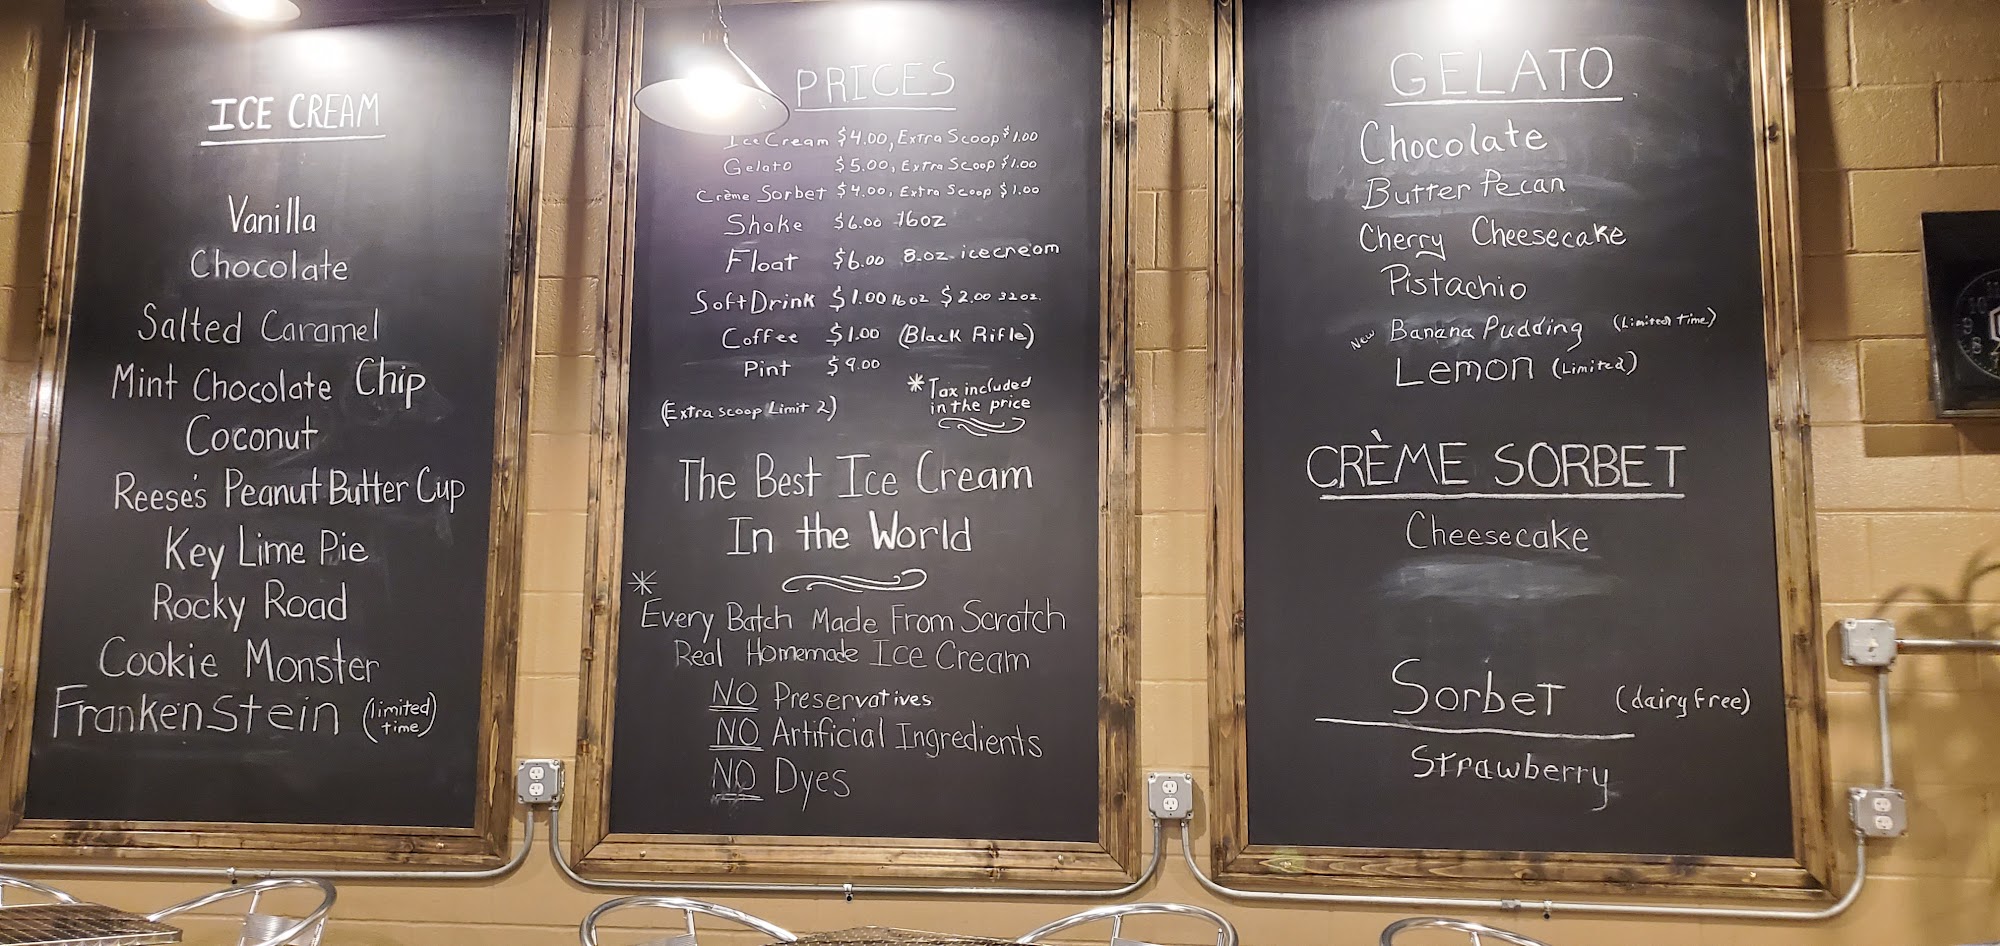 ICE CREAM
Vanilla
Chocolate
Salted Caramel
Mint Chocolate Chip
Coconut
Reese's Peanut Butter Cup
Key Lime Pie
Rocky Road
Cookie Monster
Frankenstein (limited time)
PRICES
Ice Cream $4.00, Extra Scoop $1.00
Gelato $5.00, Extra Scoop $1.00
Crème Sorbet $4.00, Extra Scoop $1.00
Shake $6.00 16oz
Float $6.00 8.oz. icecream
Soft Drink $1.00 16oz $2.00 32oz.
Coffee $1.00 (Black Rifle)
Pint $9.00
(Extra scoop Limit 2)
*Tax included
in the price
The Best Ice Cream
In the World
*
Every Batch Made From Scratch
Real Homemade Ice Cream
NO Preservatives
NO Artificial Ingredients
NO Dyes
GELATO
Chocolate
Butter Pecan
Cherry Cheesecake
Pistachio
New Banana Pudding (Limited Time)
Lemon (Limited)
CRÈME SORBET
Cheesecake
Sorbet (dairy free)
Strawberry